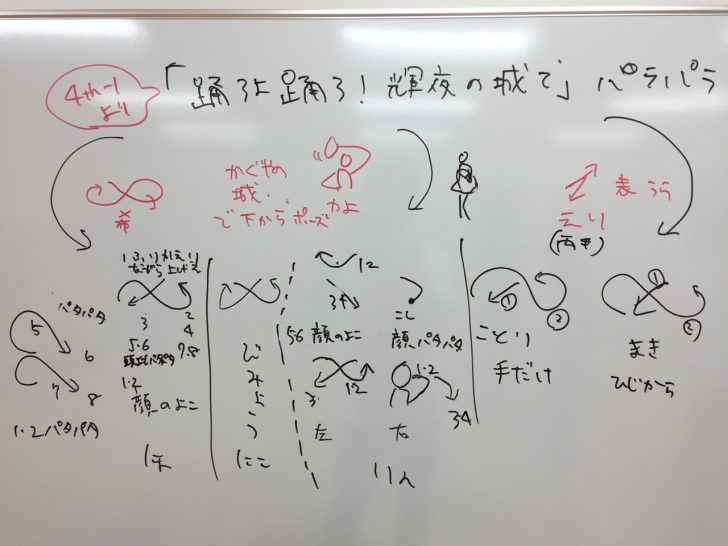 4th-1
より
「踊ろよ踊ろ！輝夜の城で」パラパラ
希
かぐやの
城
で下からポーズ
かよ
表 うら
えり
(両き)
1.ふりかえり
ながら上しだえ
3
2
4
5・6
頭上パタパタ
7.8
1・2
顔のよこ
1年
パタパタ
5
6
7
8
1・2 パタパタ
びみょう
にこ
12
34
56 顔のよこ
こし
顔パタパタ
3
1・2
左
1・2
34
右
りん
①
②
ことり
手だけ
①
②
まき
ひじから